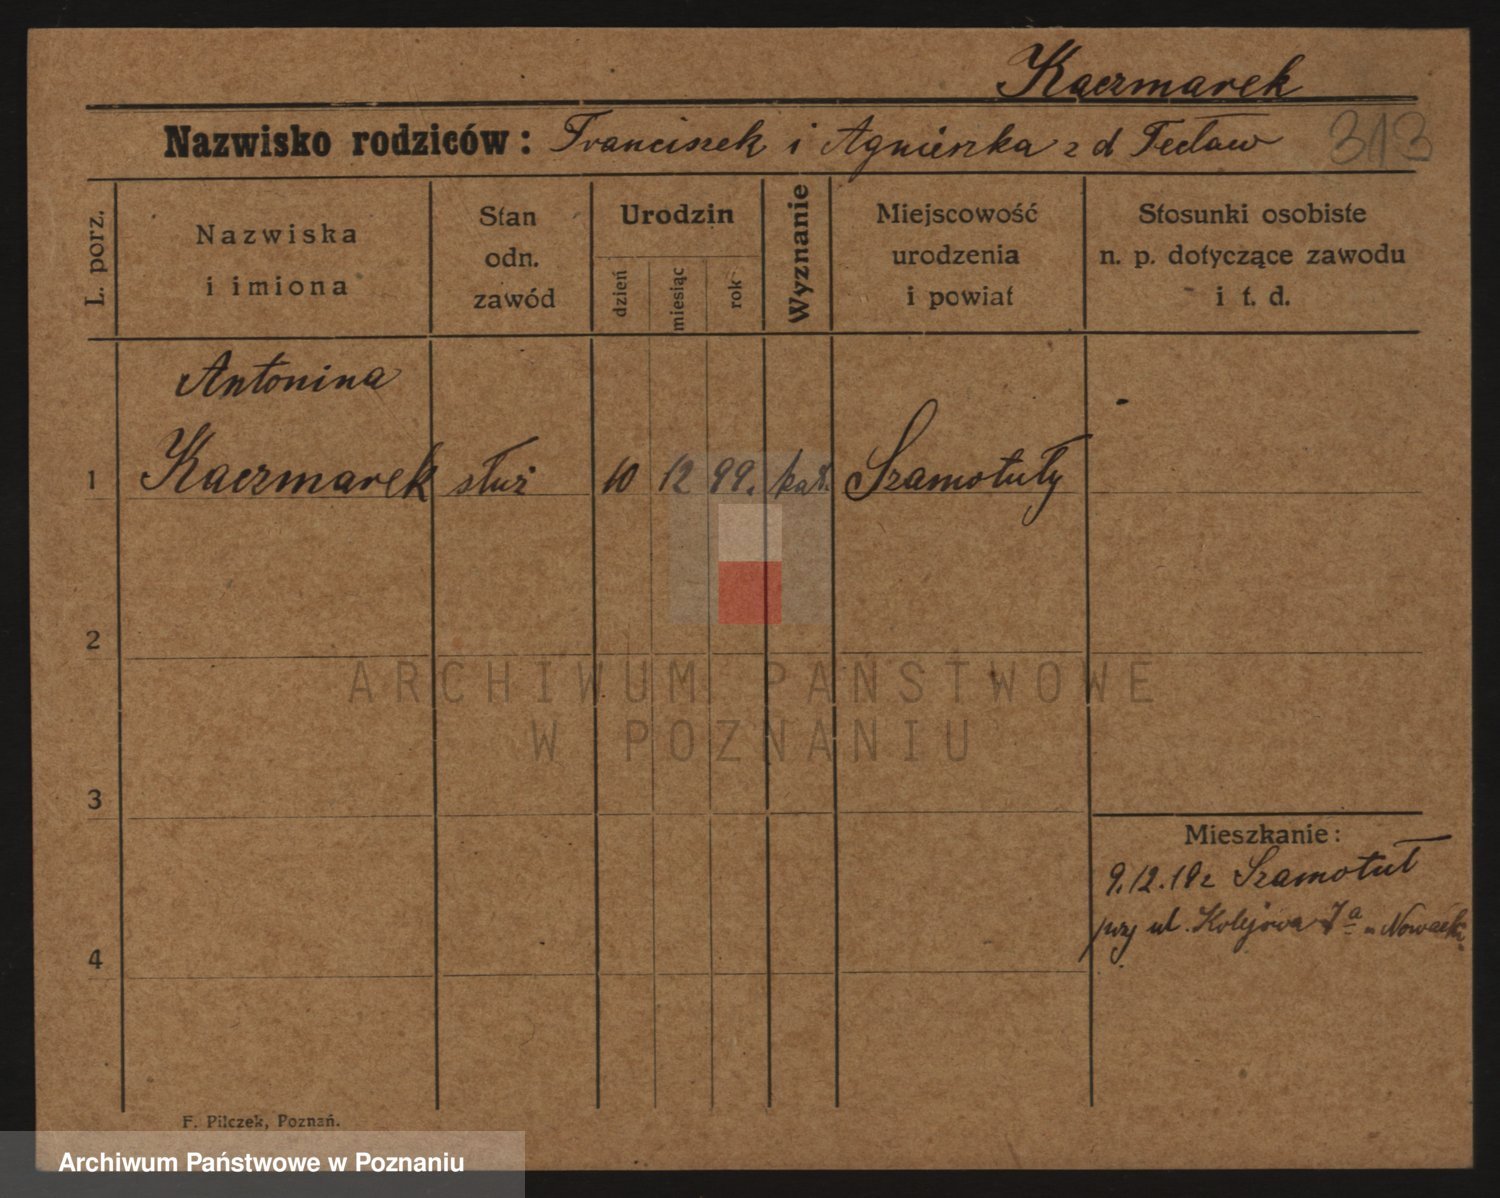 Kaczmarek
Nazwisko rodziców: Franciszek i Agnieszka z d Fecław
313
L. porz.
Nazwiska
i imiona
Stan
odn.
zawód
Urodzin
dzień
miesiąc
rok
Wyznanie
Miejscowość
urodzenia
i powiat
Stosunki osobiste
n. p. dotyczące zawodu
i t. d.
Antonina
1 Kaczmarek służ 10 12 99. kat. Szamotuły
2
ARCHIWUM PAŃSTWOWE
W POZNANIU
3
Mieszkanie:
9.12.18 z Szamotuł
przy ul. Kolejowa 7a
4
F. Pilczek, Poznań.
Archiwum Państwowe w Poznaniu